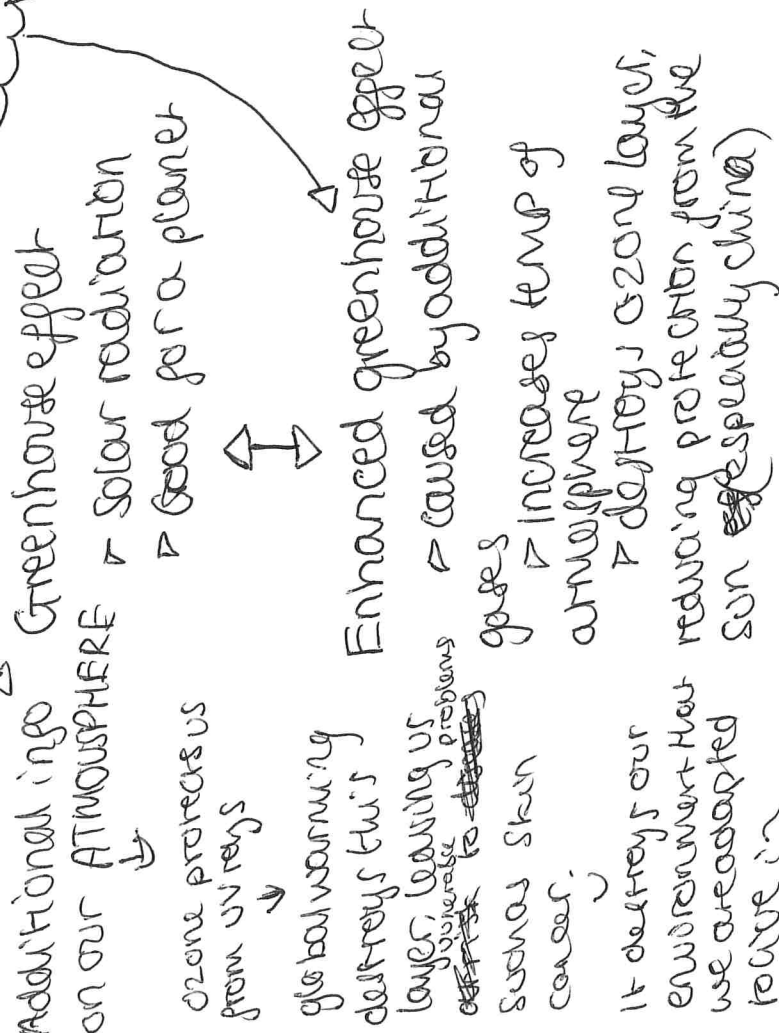 Additional info
on our ATMOUSPHERE
ozone protects us
from uv rays
global warming
destroys this
layer, leaving us
vunerable to problems
such as skin
cancer.
It destroys our
environment that
we are adapted
to live in
Greenhouse effect
▹ Solar radiation
▹ Good for a planet
Enhanced greenhouse effect
▹ caused by additional
gases
▹ Increases temp of
atmosphere
▹ destroys ozone layer,
reducing protection from the
sun (especially china)